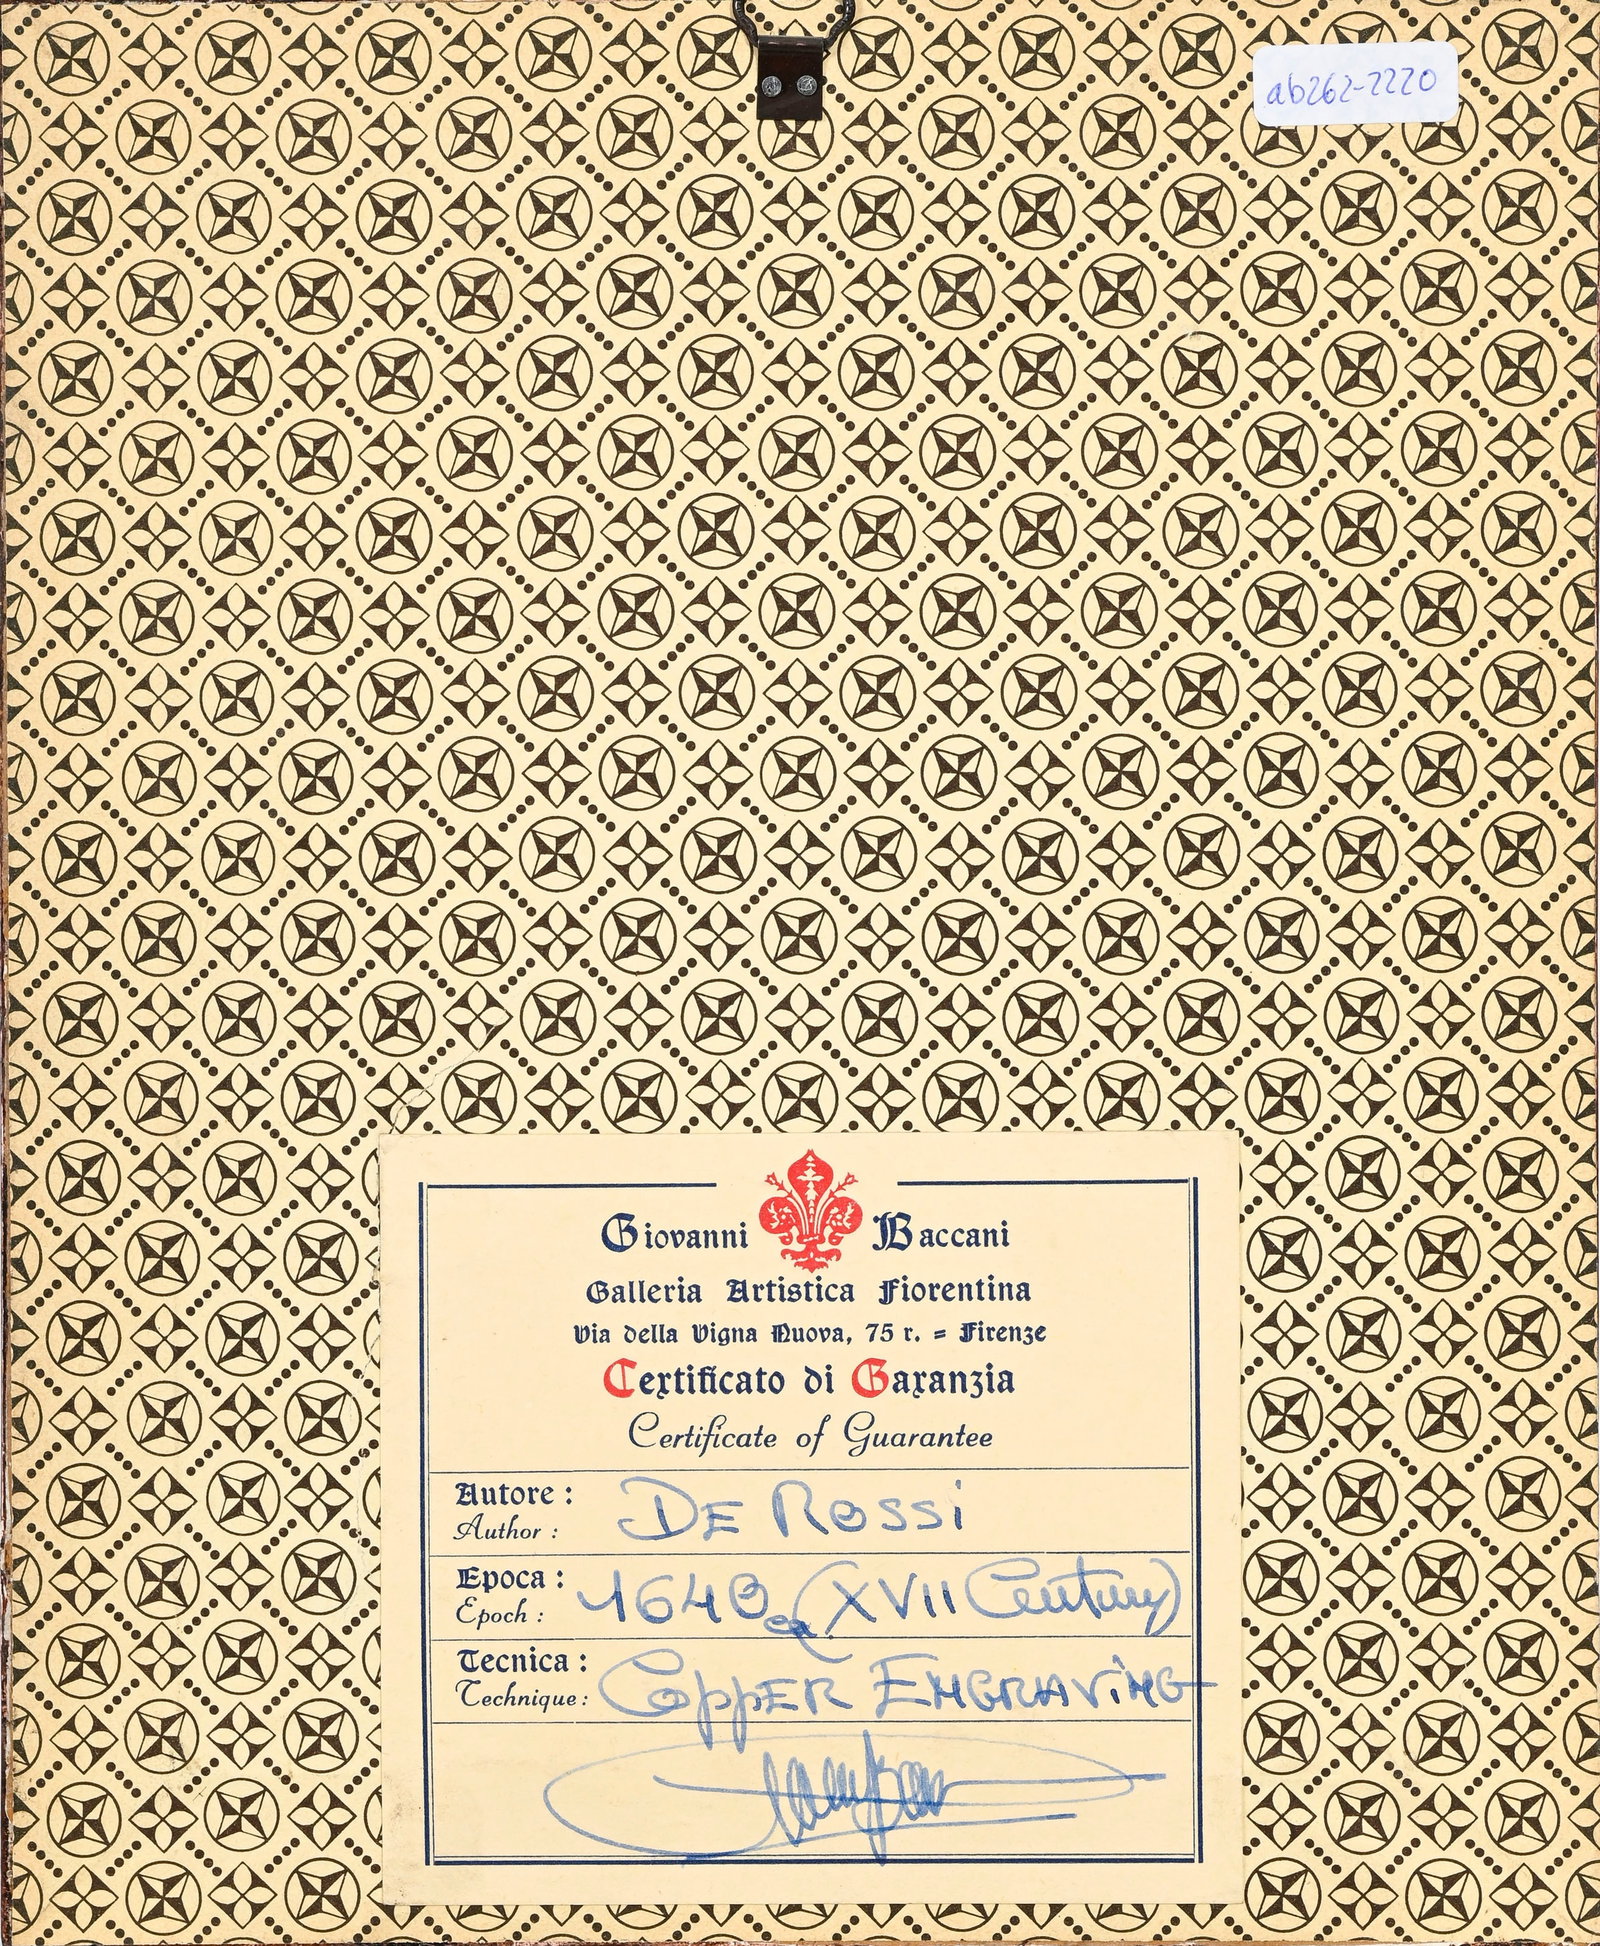 ab262-2220
Giovanni Baccani
Galleria Artistica Fiorentina
Via della Vigna Nuova, 75 r. = Firenze
Certificato di Garanzia
Certificate of Guarantee
Autore: DE ROSSi
Author:
Epoca: 1640 ca (XVII Century)
Epoch:
Tecnica: COppER ENGRAViNG
Technique: